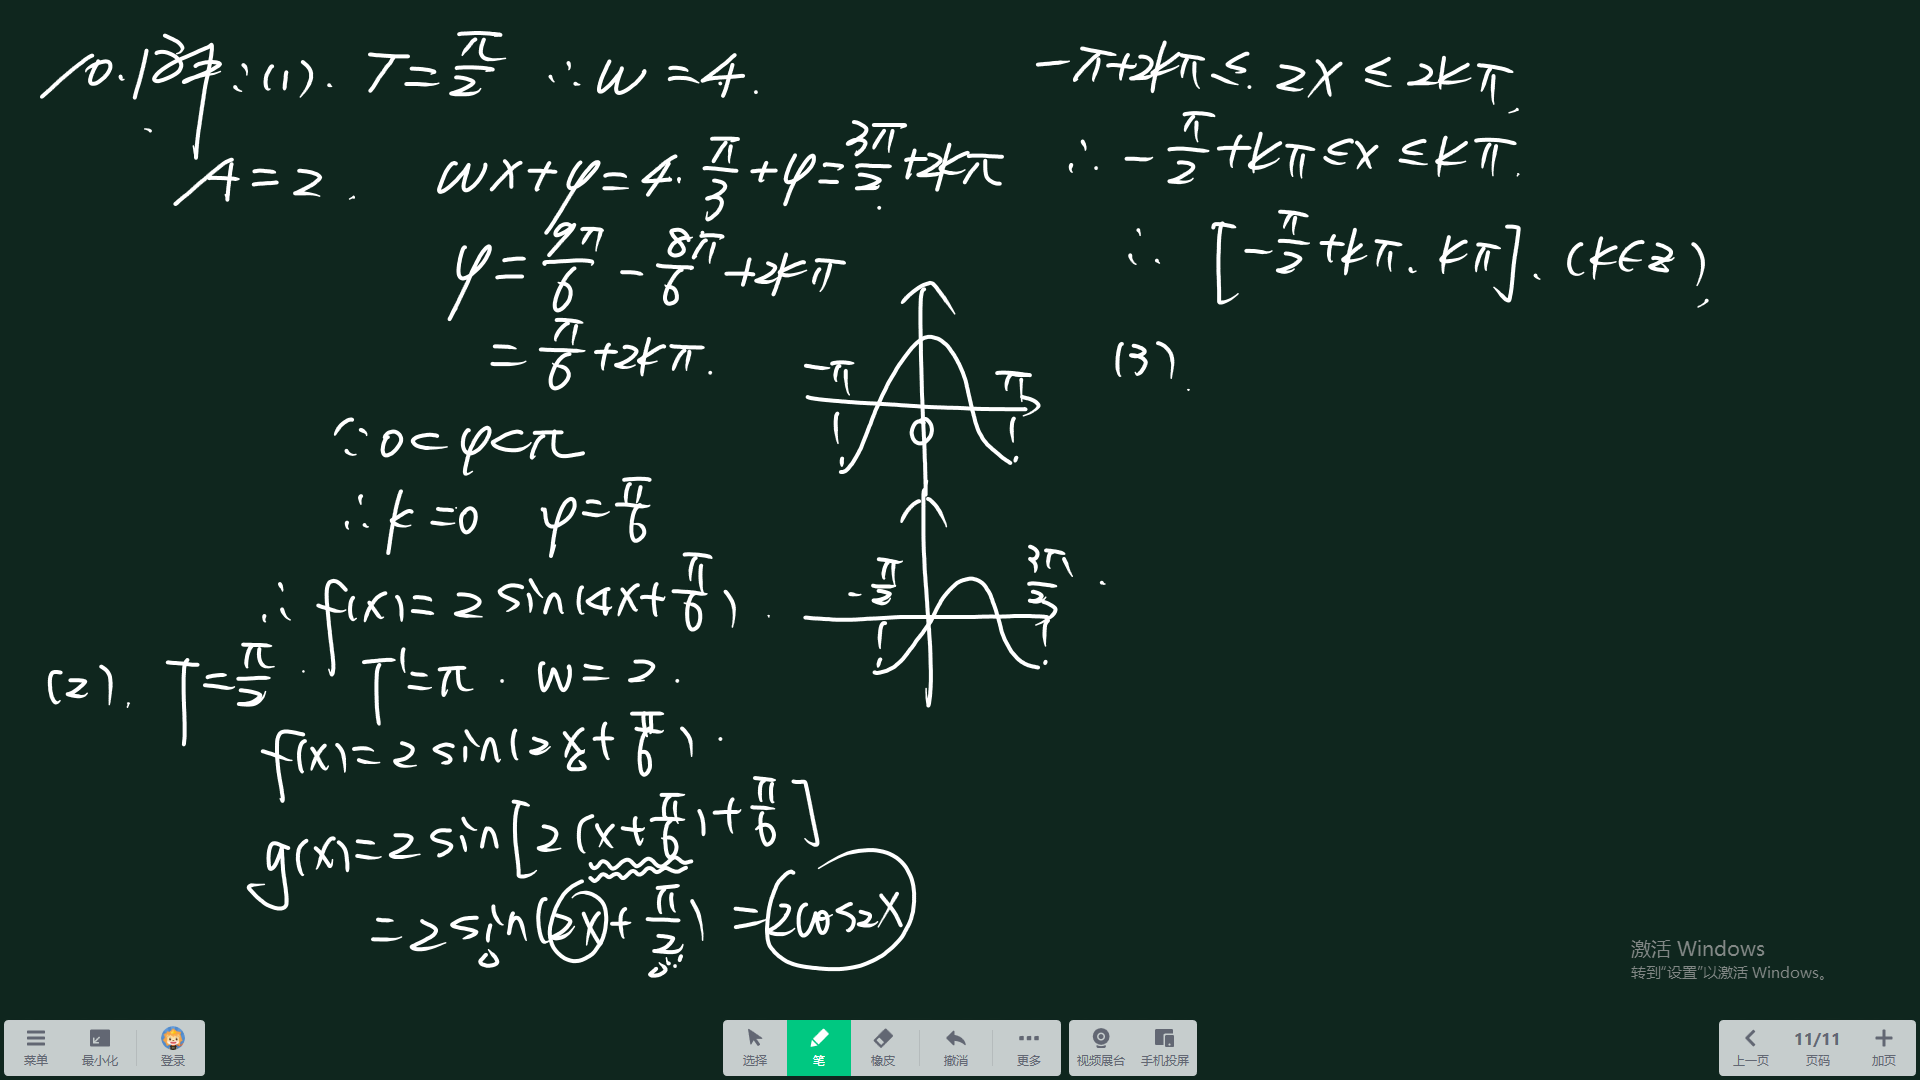 10.解:(1). T=π/2 ∴w=4.
A=2. wx+φ=4·π/3+φ=3π/2+2kπ
φ=9π/6-8π/6+2kπ
=π/6+2kπ.
∵0<φ<π
∴k=0 φ=π/6
∴f(x)=2sin(4x+π/6).
(2). T=π/2. T'=π. w=2.
f(x)=2sin(2x+π/6).
g(x)=2sin[2(x+π/6)+π/6]
=2sin(2x+π/2)=2cos2x
-π π
0
-π/2 3π/2
-π+2kπ≤2x≤2kπ.
∴-π/2+kπ≤x≤kπ.
∴[-π/2+kπ、kπ]、(k∈Z),
(3).
激活 Windows
转到“设置”以激活 Windows。
菜单 最小化 登录 选择 笔 橡皮 撤消 更多 视频展台 手机投屏 上一页 11/11 页码 加页